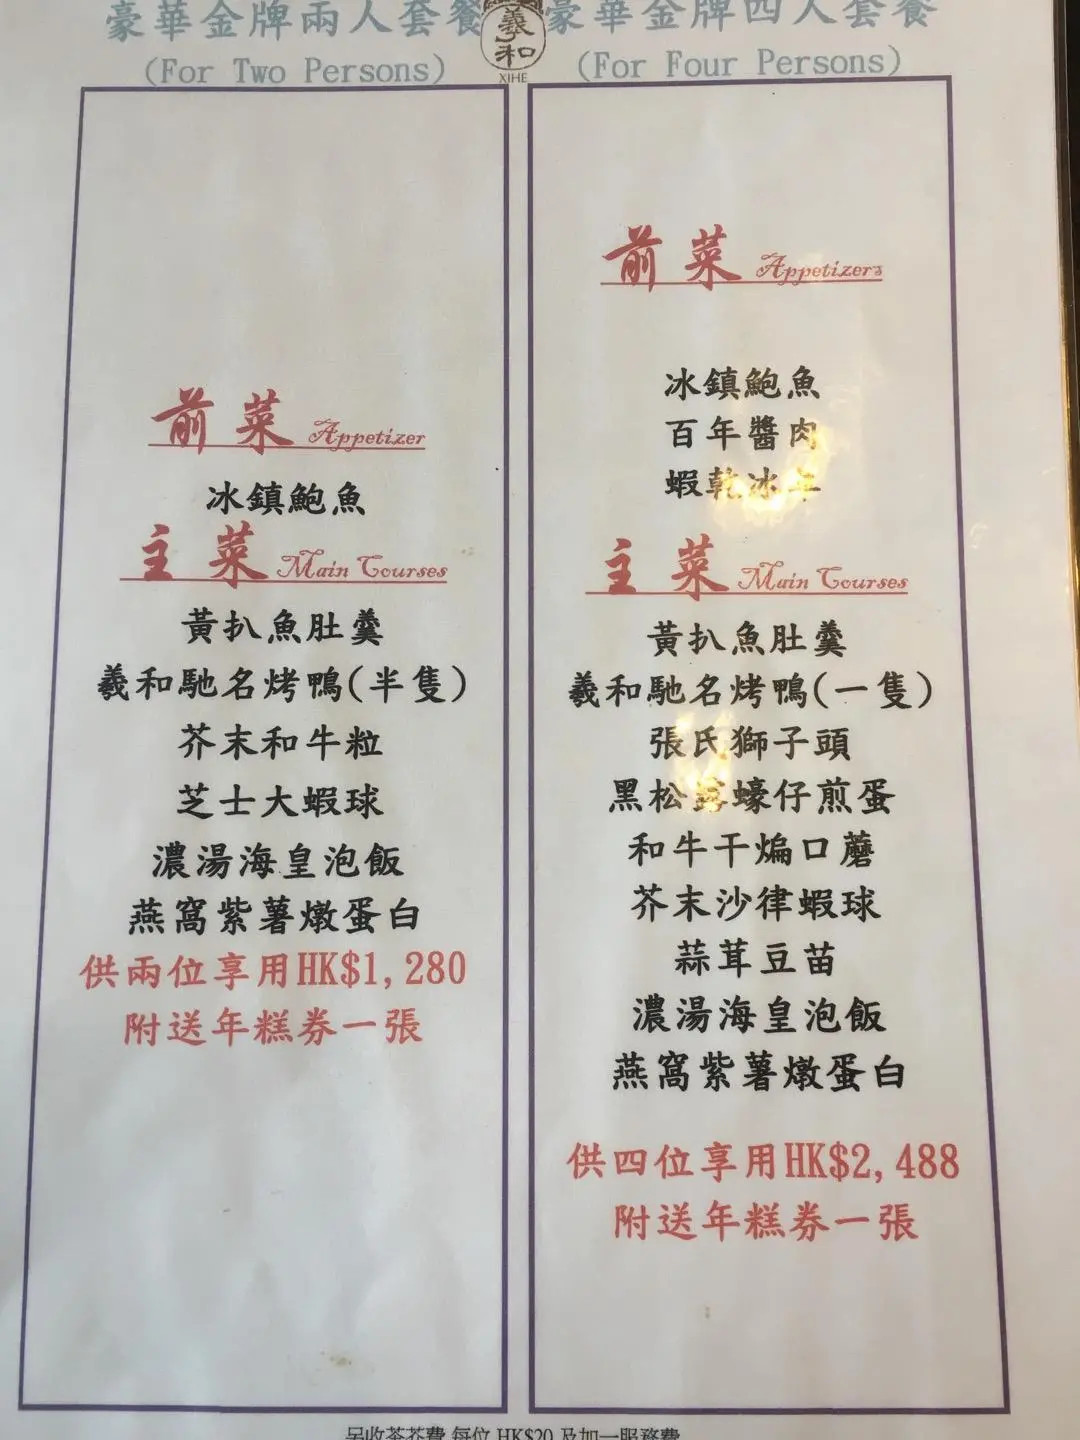 豪華金牌兩人套餐
(For Two Persons)
羲和
XIHE
豪華金牌四人套餐
(For Four Persons)
前菜 Appetizer
冰鎮鮑魚
主菜 Main Courses
黃扒魚肚羹
羲和馳名烤鴨(半隻)
芥末和牛粒
芝士大蝦球
濃湯海皇泡飯
燕窩紫薯燉蛋白
供兩位享用HK$1,280
附送年糕券一張
前菜 Appetizers
冰鎮鮑魚
百年醬肉
蝦乾冰
主菜 Main Courses
黃扒魚肚羹
羲和馳名烤鴨(一隻)
張氏獅子頭
黑松露蠔仔煎蛋
和牛干煸口蘑
芥末沙律蝦球
蒜茸豆苗
濃湯海皇泡飯
燕窩紫薯燉蛋白
供四位享用HK$2,488
附送年糕券一張
另收茶芥費 每位 HK$20 及加一服務費